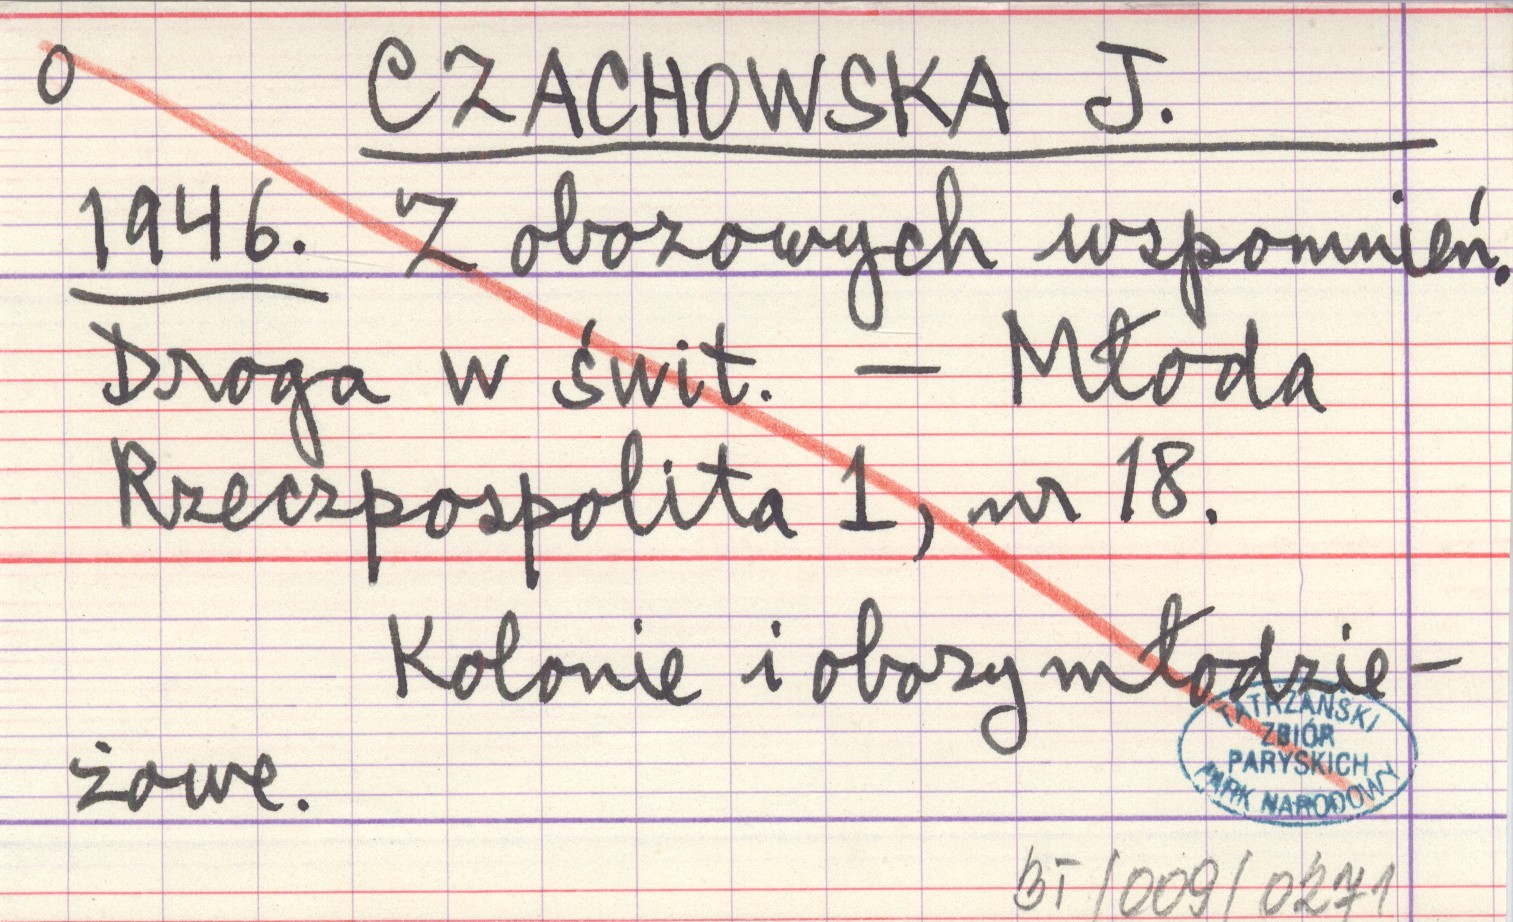 O CZACHOWSKA J.
1946. Z obozowych wspomnień.
Droga w świt. — Młoda
Rzeczpospolita 1, nr 18.
Kolonie i obozy młodzie-
żowe.
TATRZAŃSKI
ZBIÓR
PARYSKICH
PARK NARODOWY
BT/009/0271